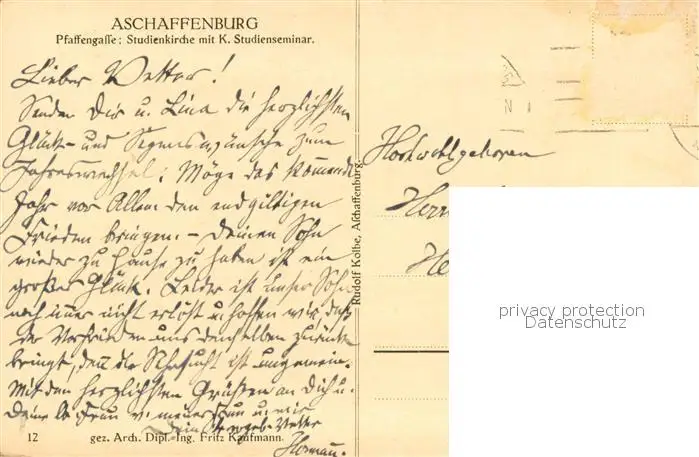 ASCHAFFENBURG
Pfaffengasse; Studienkirche mit K. Studienseminar.
Lieber Vetter!
Sende Dir u. Lina die herzlichsten
Glück- und Segenswünsche zum
Jahreswechsel; Möge das kommende
Jahr vor Allem den endgiltigen
Frieden bringen. – Deinen Sohn
wieder zu Hause zu haben ist ein
großes Glück. Leider ist unser Sohn
noch immer nicht erlöst u. hoffen wir, daß
der Vorfrieden uns denselben zurück
bringt, denn die Sehnsucht ist ungemein.
Mit den herzlichsten Grüßen an Dich u.
Deine lb. Frau v. meiner Frau u. mir
Dein Vetter
Herman.
12 gez. Arch. Dipl.-Ing. Fritz Kaufmann.
Rudolf Kolbe, Aschaffenburg.
Hochwohlgeboren
Herrn
privacy protection
Datenschutz